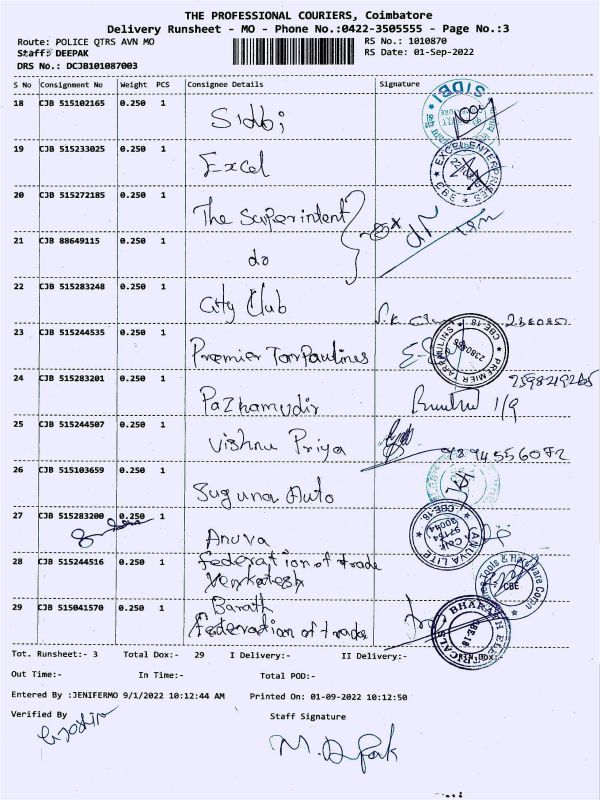 THE PROFESSIONAL COURIERS, Coimbatore
Delivery Runsheet - MO - Phone No.:0422-3505555 - Page No.:3
Route: POLICE QTRS AVN MO
RS No.: 1010870
Staff: DEEPAK
RS Date: 01-Sep-2022
DRS No.: DCJB101087003
S No Consignment No Weight PCS Consignee Details Signature
18 CJB 515102165 0.250 1 Sidbi
SIDBI
19 CJB 515233025 0.250 1 Excel
EXCEL ENTERPRISES CBE
20 CJB 515272185 0.250 1 The Superintent
21 CJB 88649115 0.250 1 do
22 CJB 515283248 0.250 1 City Club
23 CJB 515244535 0.250 1 Premier Tarpaulines
PREMIER TARPAULINS CBE-18 2380485
24 CJB 515283201 0.250 1 Pazhamudir
1/9
25 CJB 515244507 0.250 1 Vishnu Priya
9894556072
26 CJB 515103659 0.250 1 Suguna Auto
27 CJB 515283200 0.250 1 Anuva
ANUVA LITE CBE-18
28 CJB 515244516 0.250 1 federation of trade
Venkatesh
Tools & Hardware Corpn CBE
29 CJB 515041570 0.250 1 Barath
federation of trade
Tot. Runsheet:- 3 Total Dox:- 29 I Delivery:- II Delivery:-
Out Time:- In Time:- Total POD:-
Entered By :JENIFERMO 9/1/2022 10:12:44 AM Printed On: 01-09-2022 10:12:50
Verified By
Staff Signature